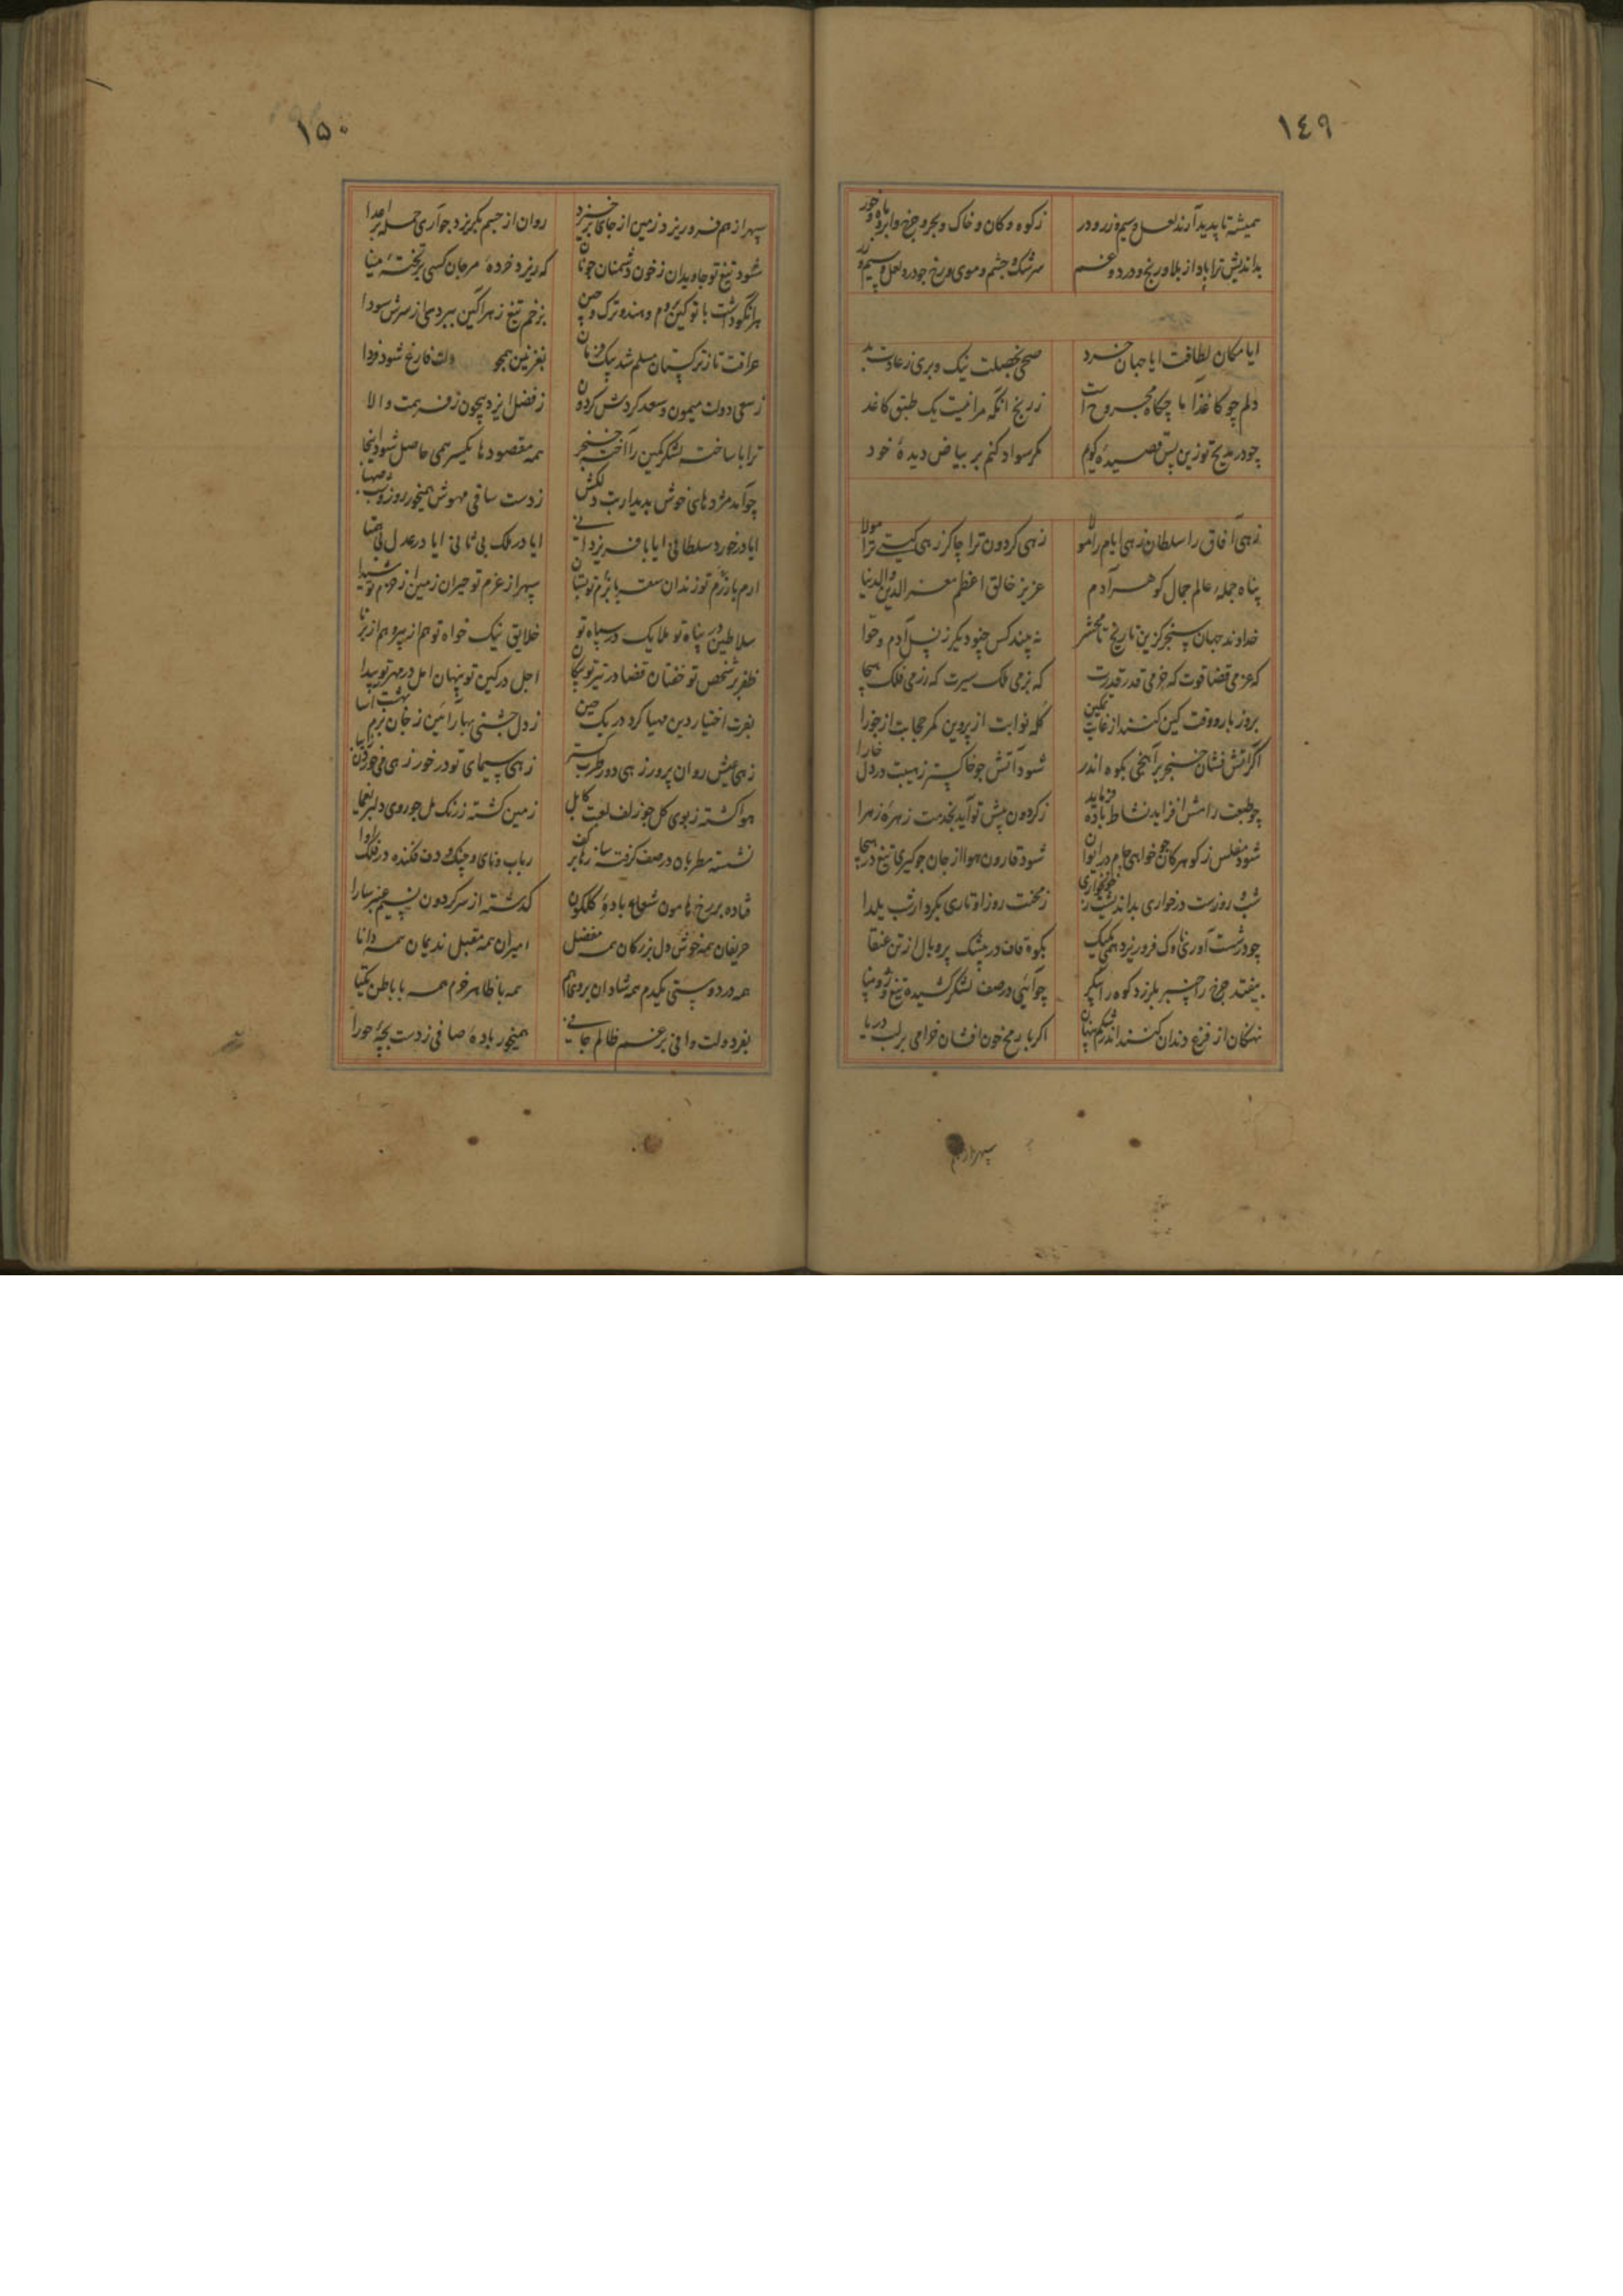 ١٤٩
همیشه تا پدید آرند لعل و سیم و زر و در
زکوه و کان و خاک و بحر و چرخ و ابر و ماه و خور
بداندیش ترا باد از بلا و رنج و درد و غم
سرشک و چشم و موی و رخ چو در و لعل و سیم و زر
ایا مکان لطافت ایا جهان خرد
بخصلت نیک و بری ز عادت بد
دلم چو کاغذ با چکاه مجروح است
ز رنج آنکه مرا نیست یک طبق کاغذ
چو در مدیح تو زین پس قصیده گویم
مگر سواد کنم بر بیاض دیدهٔ خود
زهی آفاق را سلطان زهی ایام را مولا
زهی گردون ترا چاکر زهی گیتی ترا مولا
پناه جمله عالم جمال گوهر آدم
عزیز خالق اعظم معز الدین والدنیا
خداوند جهان سنجر کزین تاریخ تا محشر
نه بیند کس چنو دیگر ز نسل آدم و حوا
که عزمی قضا قوت که حزمی قدر قدرت
که بزمی ملک سیرت که رزمی فلک هیجا
بروز بار و وقت کین کنند از غایت تمکین
کله نوابت از پروین کمر حجابت از جوزا
اگر آتش فشان خنجر برآهنجی بکوه اندر
شود آتش چو خاکستر ز هیبت در دل خارا
چو طبعت رامش افزاید نشاط باده فرماید
ز گردون پیش تو آید بخدمت زهرهٔ زهرا
شود مفلس ز گوهر کان چو خواهی جام در ایوان
شود قارون هوا از جان چو گیری تیغ در هیجا
ز بختت روز او تاری بکردار شب یلدا
چو در شست آوری ناوک فرو ریزد همی یکیک
بکوه قاف در بیشک پر و بال از تن عنقا
بیفتد چرخ را چنبر بلرزد کوه را پیکر
چو آئی در صف لشکر کشیده تیغ و ژوپینا
نهنگان از فزع دندان کنند اندر شکم پنهان
اگر با رمح خون افشان خرامی بر لب دریا
سپهر از هم
١٥٠
سپهر از هم فرو ریزد زمین از جای برخیزد
روان از جسم بگریزد چو آری حمله بر اعدا
شود تیغ تو جاویدان ز خون دشمنان چونان
که ریزد خردهٔ مرجان کسی بر تختهٔ مینا
هر آنکو داشت با تو کین ز روم و هند و ترک و چین
بزخم تیغ زهرآگین ببردی از سرش سودا
عراقت تا ز ترکستان مسلم شد بیک فرمان
بغزنین همچو دلت فارغ شود فردا
ز سعی دولت میمون و سعد گردش گردون
ز فضل ایزد بیچون ز فر همت والا
ترا با ساخته لشکر کمین را آخته خنجر
همه مقصودها یکسر همی حاصل شود اینجا
چو آمد مژدهای خوش بدیدارت دلکش
ز دست ساقی مهوش همیخور روز و شب صهبا
ایا در خورد سلطانی ایا با فر یزدانی
ایا در ملک بی ثانی ایا در عدل بی همتا
ارم با بزم تو زندان سقر با رزم تو بستان
سپهر از عزم تو حیران زمین از حزم تو شیدا
سلاطین در پناه تو ملایک در سپاه تو
خلایق نیک خواه تو هم از پیر و هم از برنا
ظفر بر شخص تو خفتان قضا در تیر تو پیکان
اجل در کین تو پنهان امل در مهر تو پیدا
بفرت اختیار دین مهیا کرد در یک حین
ز دل جشنی بهار آئین ز جان بزم بهشت آسا
زهی عیش روان پرور زهی دور طرب گستر
هوا گشته ز بوی گل چو زلف لعبت کابل
زمین گشته ز رنگ مل چو روی دلبر یغما
نشسته مطربان در صف گرفته سازها بر کف
رباب و نای و چنگ و دف فکنده در فلک آوا
فتاده بر رخ هامون شعاع بادهٔ گلگون
گذشته از سر گردون نسیم عنبر سارا
حریفان همه خوش دل بزرگان همه مفضل
امیران همه مقبل ندیمان همه دانا
همه در دوستی یکدم همه شادان
همه با ظاهر خرم همه با باطن یکتا
همیخور بادهٔ صافی ز دست بچهٔ حورا